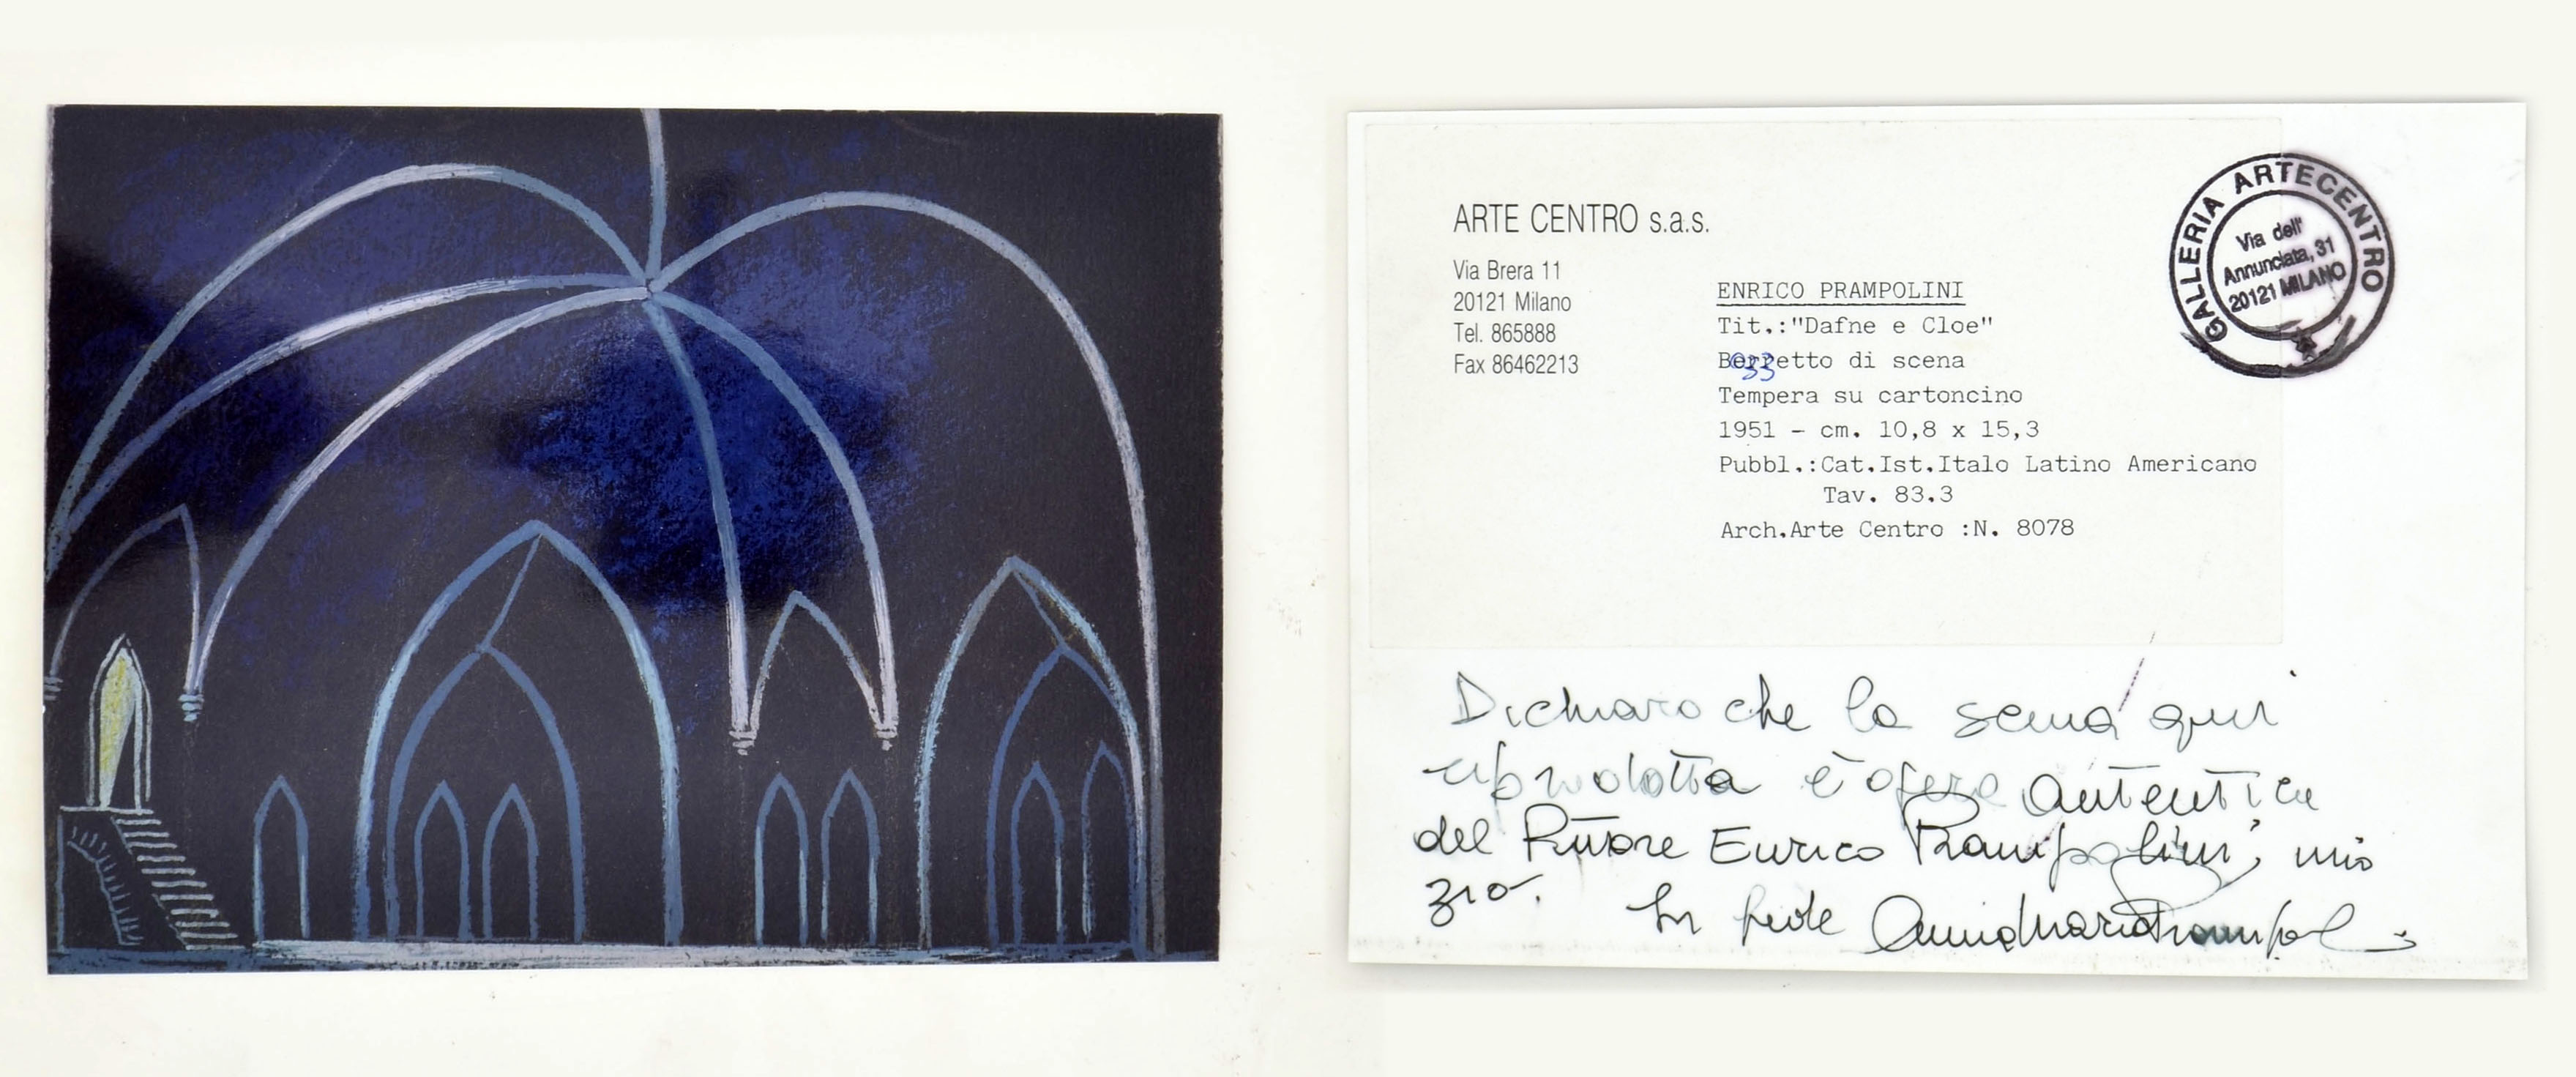 ARTE CENTRO s.a.s.
Via Brera 11
20121 Milano
Tel. 865888
Fax 86462213
ENRICO PRAMPOLINI
Tit.:"Dafne e Cloe"
Bozzetto di scena
Tempera su cartoncino
1951 - cm. 10,8 x 15,3
Pubbl.:Cat.Ist.Italo Latino Americano
Tav. 83.3
Arch.Arte Centro :N. 8078
GALLERIA ARTECENTRO
Via dell'
Annunciata, 31
20121 MILANO
Dichiaro che la scena qui
riprodotta è opera autentica
del Pittore Enrico Prampolini, mio
zio.
In fede Anna Maria Prampolini